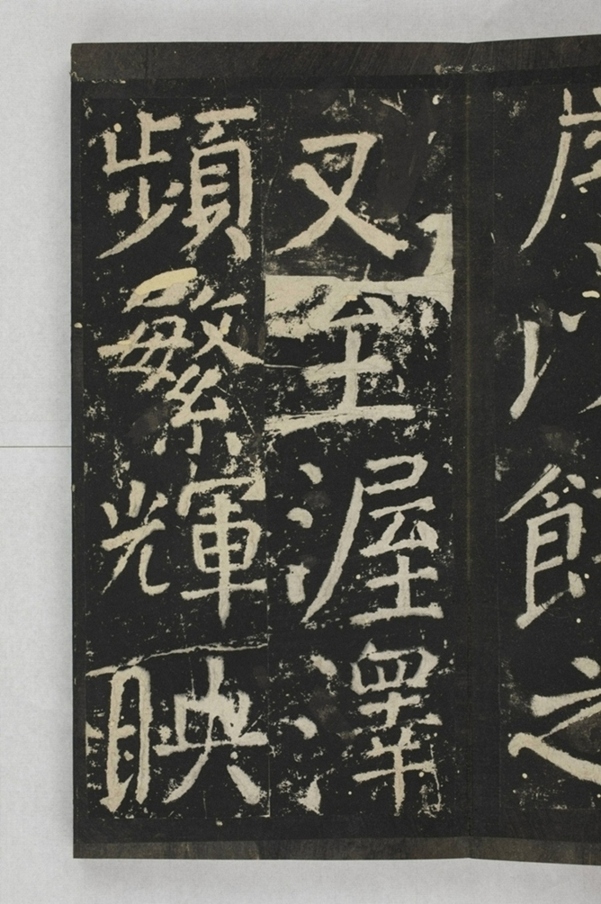 以之
又至渥澤
頻繁輝映